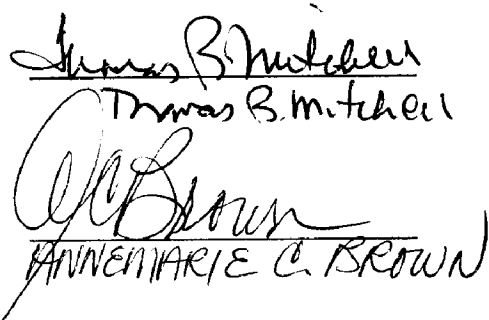 Thomas B. Mitchell
Thomas B. Mitchell
ACBrown
ANNEMARIE C. BROWN